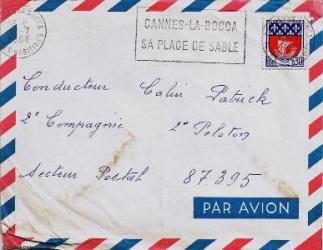 CANNES-LA-BOCCA
SA PLAGE DE SABLE
Conducteur Calvi Patrick
2e Compagnie 2e Peloton
Secteur Postal 87.395
PAR AVION